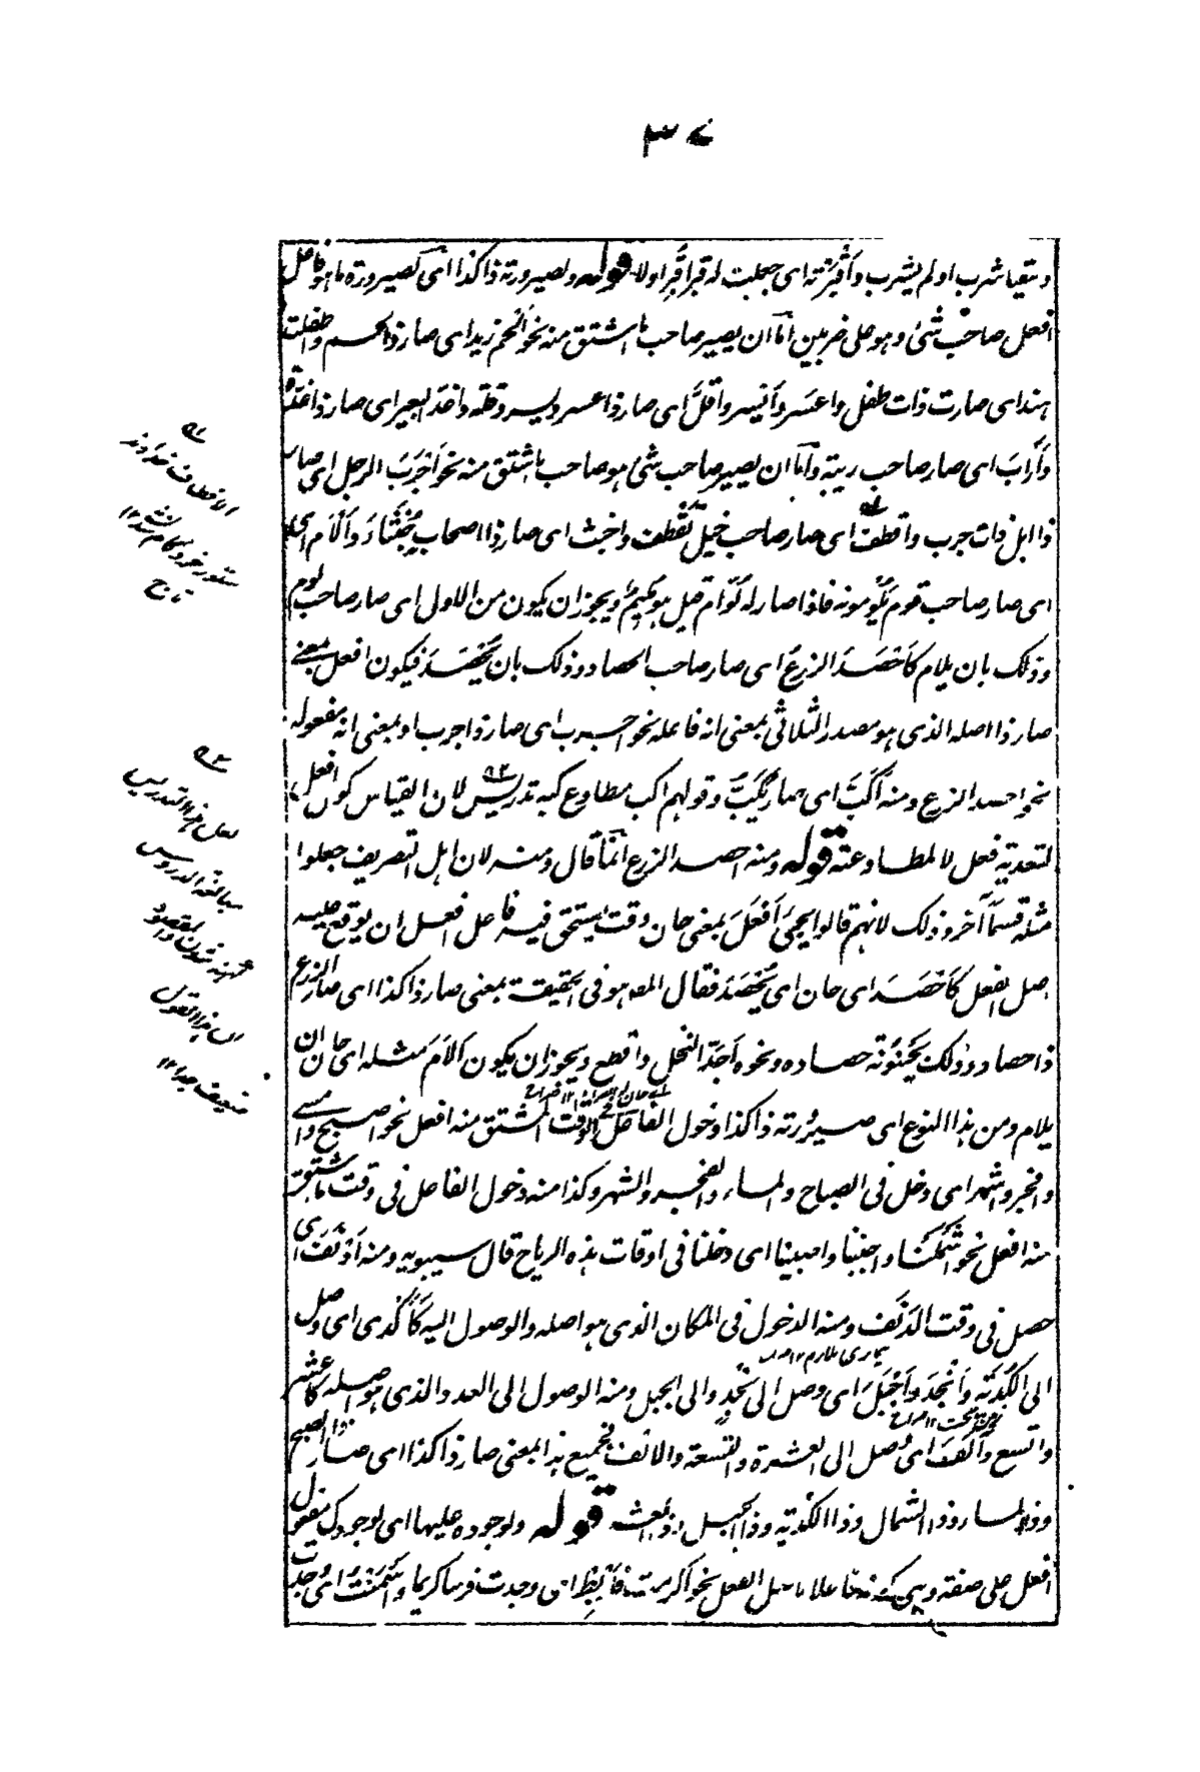 ٣٧
وسقيا شرب او لم يشرب وأقبرته اى جعلت له قبرا قُبِر اولا قوله ولصيرورته ذا كذا اى لصيرورة ما هو فاعل
افعل صاحب شئ وهو على ضربين امّا ان يصير صاحب ما اشتق منه نحو ألحم زيد اى صار ذا لحم واطفلت
هند اى صارت ذات طفل واعسر وأيسر وأقلّ اى صار ذا عسر ويسر وقلة واغدّ البعير اى صار ذا غدة
وأراب اى صار صاحب ريبة وامّا ان يصير صاحب شئ هو صاحب ما اشتق منه نحو أجرب الرجل اى صار
ذا ابل ذات جرب واقطف اى صار صاحب خيل تقطف واخبث اى صار ذا اصحاب خبثاء وألام
اى صار صاحب قوم يلومونه فاذا صار له لوّام قيل هو مُليم ويجوز ان يكون من الاول اى صار صاحب لوم
وذلك بان يلام كأحصد الزرع اى صار صاحب الحصاد وذلك بان يُحصد فيكون افعل بمعنى
صار ذا اصله الذى هو مصدر الثلاثى بمعنى انه فاعله نحو اجرب اى صار ذا جرب او بمعنى انه مفعوله
نحو احصد الزرع ومنه أكبّ اى صار يُكَبّ وقولهم اكب مطاوع كبه تدريس لان القياس كون افعل
لتعدية فعل لا لمطاوعته قوله ومنه احصد الزرع انما قال ومنه لان اهل التصريف جعلوا
مثله قسما آخر وذلك لانهم قالوا يجئ أفعل بمعنى حان وقت يستحق فيه فاعل افعل ان يوقع عليه
اصل الفعل كأحصد اى حان اى يُحصد فقال المص هو فى الحقيقة بمعنى صار ذا كذا اى صار الزرع
ذا حصاد وذلك بحينونة حصاده ونحوه أجدّ النخل واقطع ويجوز ان يكون ألام مثله اى حان ان
يلام ومن هذا النوع اى صيرورته ذا كذا دخول الفاعل فى الوقت المشتق منه افعل نحو اصبح وامسى
وافجر واشهر اى دخل فى الصباح والمساء والفجر والشهر وكذا منه دخول الفاعل فى وقت ما اشتق
منه افعل نحو أشملنا واجنبنا واصبينا اى دخلنا فى اوقات هذه الرياح قال سيبويه ومنه أدنف اى
حصل فى وقت الدنف ومنه الدخول فى المكان الذى هو اصله والوصول اليه كأكدى اى وصل
الى الكدية وأنجد وأجبل اى وصل الى نجد والى الجبل ومنه الوصول الى العدد الذى هو اصله كأعشر
واتسع وآلف اى وصل الى العشرة والتسعة والالف فجميع هذا بمعنى صار ذا كذا اى صار ذا الصبح
وذا المساء وذا الشمال وذا الكدية وذا الجبل وذا العشرة قوله ولوجوده عليها اى لوجودك مفعول
افعل على صفة وهى كونه فاعلا لاصل الفعل نحو اكرم فاربط اى وجدت فرسا كريما وأسمنت اى وجدت
لعل هذا التدريس
مبالغة الدروس
ضعيف جدا ١٢